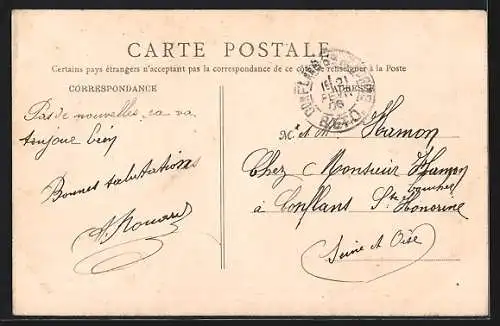 CARTE POSTALE
Certains pays étrangers n'acceptent pas la correspondance de ce côté, se renseigner à la Poste
CORRESPONDANCE
ADRESSE
Pas de nouvelles, ça va
toujour bien
Bonnes salutations
Mr et M Hamon
Chez Monsieur Hamon
à Conflans Ste Honorine
Seine et Oise